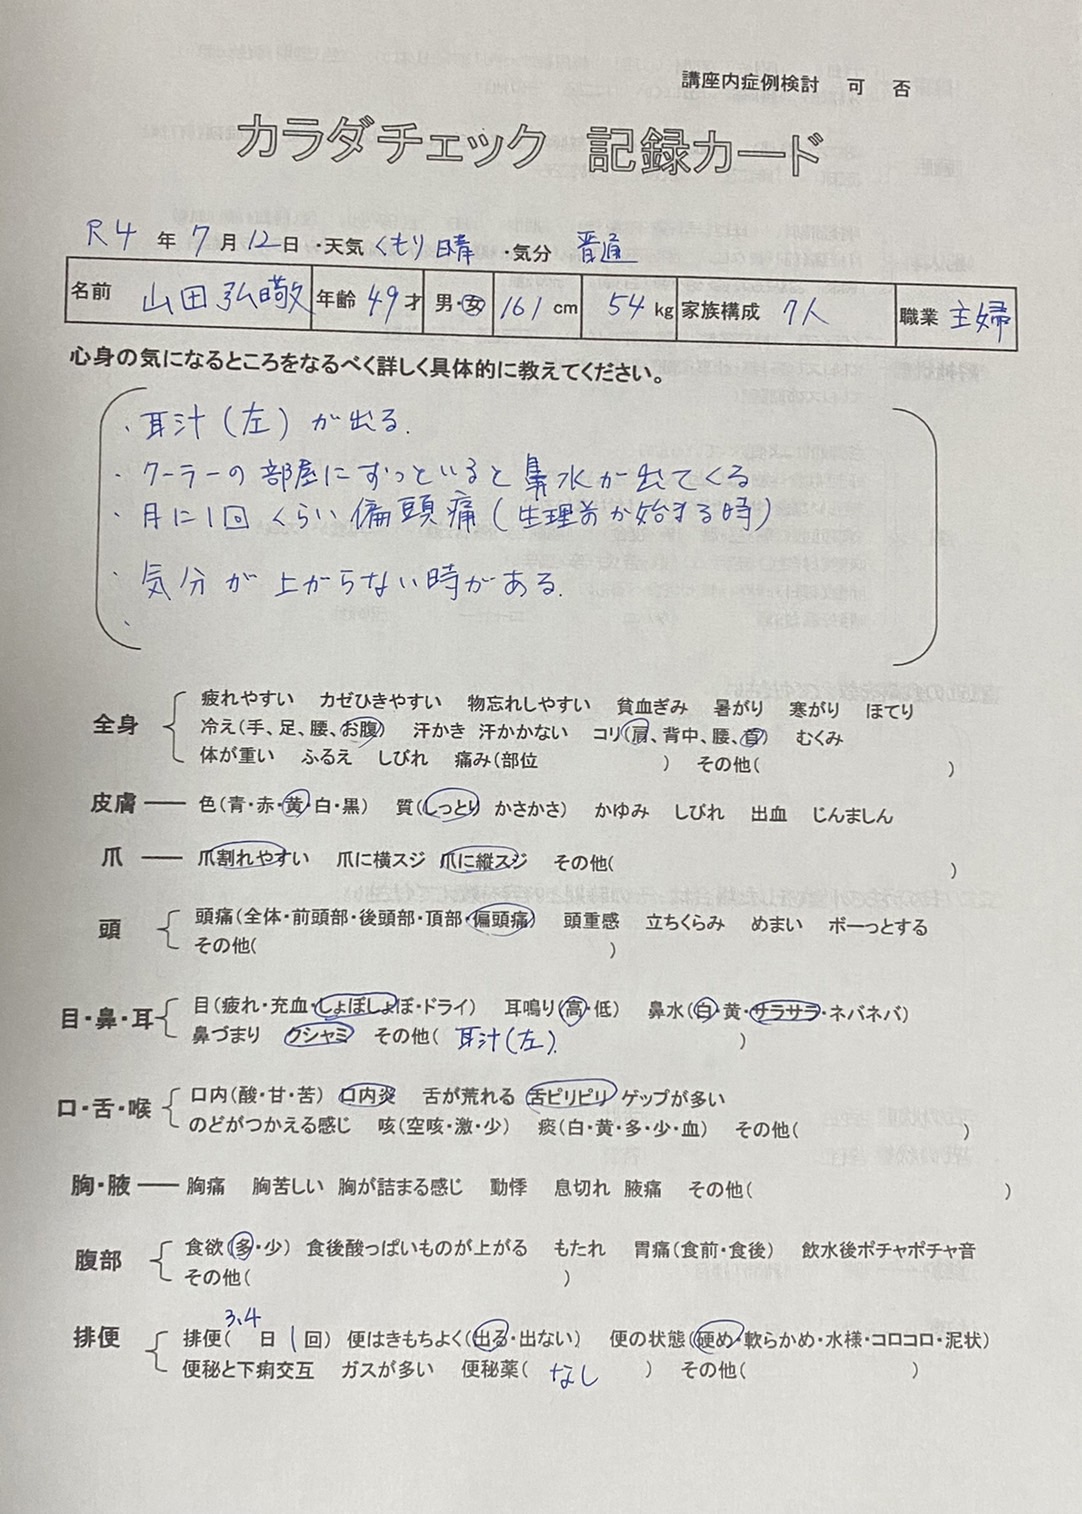 講座内症例検討 可 否
カラダチェック 記録カード
R4 年 7月12日 ・天気 くもり晴 ・気分 普通
名前 山田弘 年齢 49才 男・女 161cm 54kg 家族構成 7人 職業 主婦
心身の気になるところをなるべく詳しく具体的に教えてください。
・耳汁(左)が出る.
・クーラーの部屋にずっといると鼻水が出てくる
・月に1回くらい偏頭痛(生理前か始まる時)
・気分が上がらない時がある.
・
全身 疲れやすい カゼひきやすい 物忘れしやすい 貧血ぎみ 暑がり 寒がり ほてり
冷え(手、足、腰、お腹) 汗かき 汗かかない コリ(肩、背中、腰、首) むくみ
体が重い ふるえ しびれ 痛み(部位 ) その他( )
皮膚 色(青・赤・黄・白・黒) 質(しっとり かさかさ) かゆみ しびれ 出血 じんましん
爪 爪割れやすい 爪に横スジ 爪に縦スジ その他( )
頭 頭痛(全体・前頭部・後頭部・頂部・偏頭痛) 頭重感 立ちくらみ めまい ボーっとする
その他( )
目・鼻・耳 目(疲れ・充血・しょぼしょぼ・ドライ) 耳鳴り(高・低) 鼻水(白・黄・サラサラ・ネバネバ)
鼻づまり クシャミ その他( 耳汁(左). )
口・舌・喉 口内(酸・甘・苦) 口内炎 舌が荒れる 舌ピリピリ ゲップが多い
のどがつかえる感じ 咳(空咳・激・少) 痰(白・黄・多・少・血) その他( )
胸・腋 胸痛 胸苦しい 胸が詰まる感じ 動悸 息切れ 腋痛 その他( )
腹部 食欲(多・少) 食後酸っぱいものが上がる もたれ 胃痛(食前・食後) 飲水後ポチャポチャ音
その他( )
排便 排便( 3、4日 1回) 便はきもちよく(出る・出ない) 便の状態(硬め・軟らかめ・水様・コロコロ・泥状)
便秘と下痢交互 ガスが多い 便秘薬( なし ) その他( )